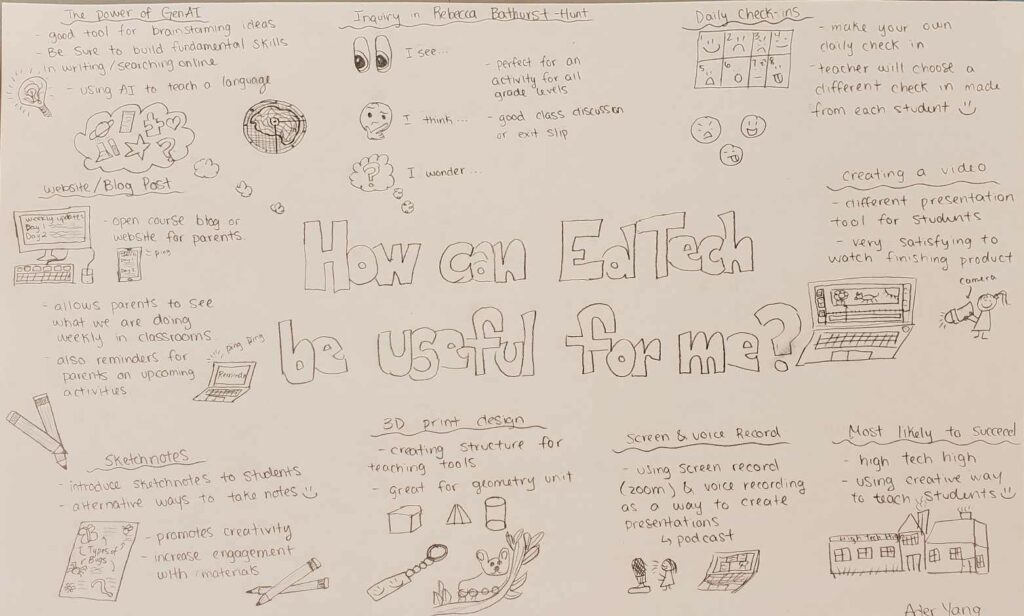 The power of GenAI
- good tool for brainstorming ideas
- Be sure to build fundamental skills
in writing/searching online
- using AI to teach a language
Inquiry in Rebecca Bathurst-Hunt
I see...
I think...
I wonder...
- perfect for an
activity for all
grade levels
- good class discussion
or exit slip
Daily Check-ins
1
2
3
4
5
6
7
8
- make your own
daily check in
- teacher will choose a
different check in made
from each student
Website/Blog Post
Weekly updates
Day 1
Day 2
ping
- open course blog or
website for parents.
- allows parents to see
what we are doing
weekly in classrooms.
- also reminders for
parents on upcoming
activities.
ping ping
How can EdTech
be useful for me?
creating a video
- different presentation
tool for students
- very satisfying to
watch finishing product
camera
Sketchnotes
- introduce sketchnotes to students
- alternative ways to take notes
- promotes creativity
- increase engagement
with materials
Types of
Bugs
3D print design
- creating structure for
teaching tools
- great for geometry unit
Screen & voice Record
- using screen record
(zoom) & voice recording
as a way to create
presentations
↳ podcast
Most likely to succeed
- high tech high
- using creative way
to teach students
High Tech High
Ater Yang